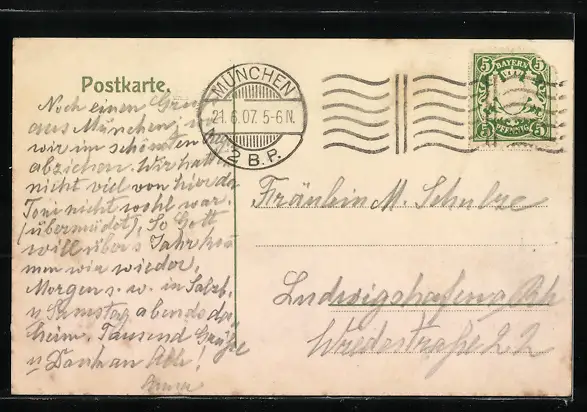 Postkarte.
MÜNCHEN
21.6.07. 5-6 N.
2 B.P.
BAYERN
5 5
5 PFENNIG 5
Noch einen
aus München,
wir im schönsten
abziehen. Wir hatt
nicht viel von hier da
Toni nicht wohl war.
(übermüdet). So Gott
will übers Jahr ko
men wir wieder,
Morgen s. w. in Salzb.
u Samstag abends da
heim. Tausend Grüße
u Dank an Alle!
Fräulein M. Schulze
Ludwigshafen a Rh
Wredestraße 22